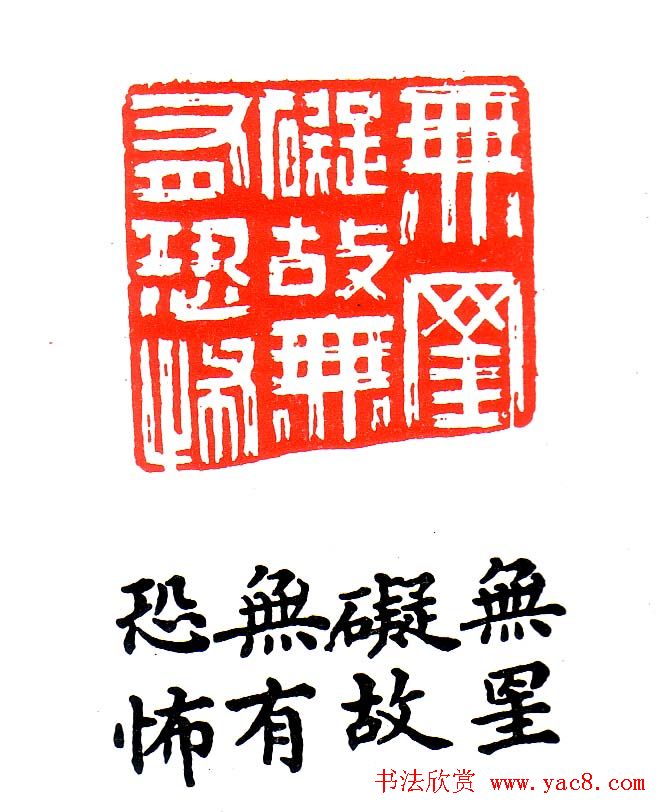 無罣
礙故無
有恐怖
無罣
礙故
無有
恐怖
书法欣赏 www.yac8.com